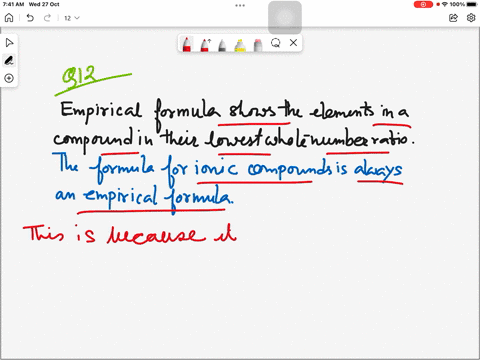 7:41 AM Wed 27 Oct
100%
12
Q12
Empirical formula shows the elements in a
compound in their lowest whole number ratio.
The formula for ionic compounds is always
an empirical formula.
This is because it